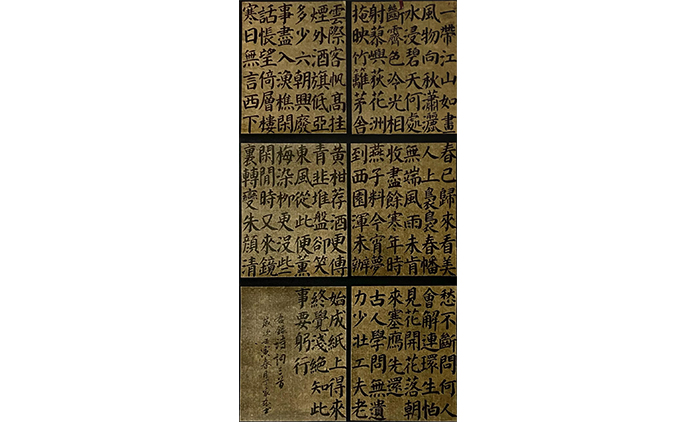 一帶江山如畫
風物向秋瀟灑
水浸碧天何處
斷霽色冷光相
射蓼嶼荻花洲
掩映竹籬茅舍
雲際客帆高挂
煙外酒旗低亞
多少六朝興廢
事盡入漁樵閒
話悵望倚層樓
寒日無言西下
春已歸來看美
人上裊裊春幡
無端風雨未肯
收盡餘寒年時
燕子料今宵夢
到西園渾未辦
黃柑荐酒更傳
青韭堆盤卻笑
東風從此便薰
梅染柳更沒些
閑閒時又來鏡
裏轉變朱顏清
愁不斷問何人
會解連環生怕
見花開花落朝
來塞鴈先還
古人學問無遺
力少壯工夫老
始成紙上得來
終覺淺絕知此
事要躬行
古詩詞三首